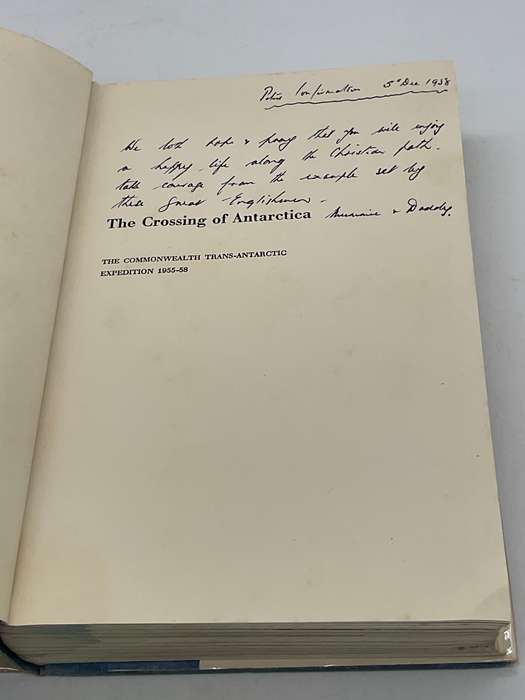 Peter's Confirmation 5th Dec 1958
We both hope & pray that you will enjoy
a happy life along the Christian path.
take courage from the example set by
these Great Englishmen.
The Crossing of Antarctica Mummie & Daddy.
THE COMMONWEALTH TRANS-ANTARCTIC
EXPEDITION 1955-58